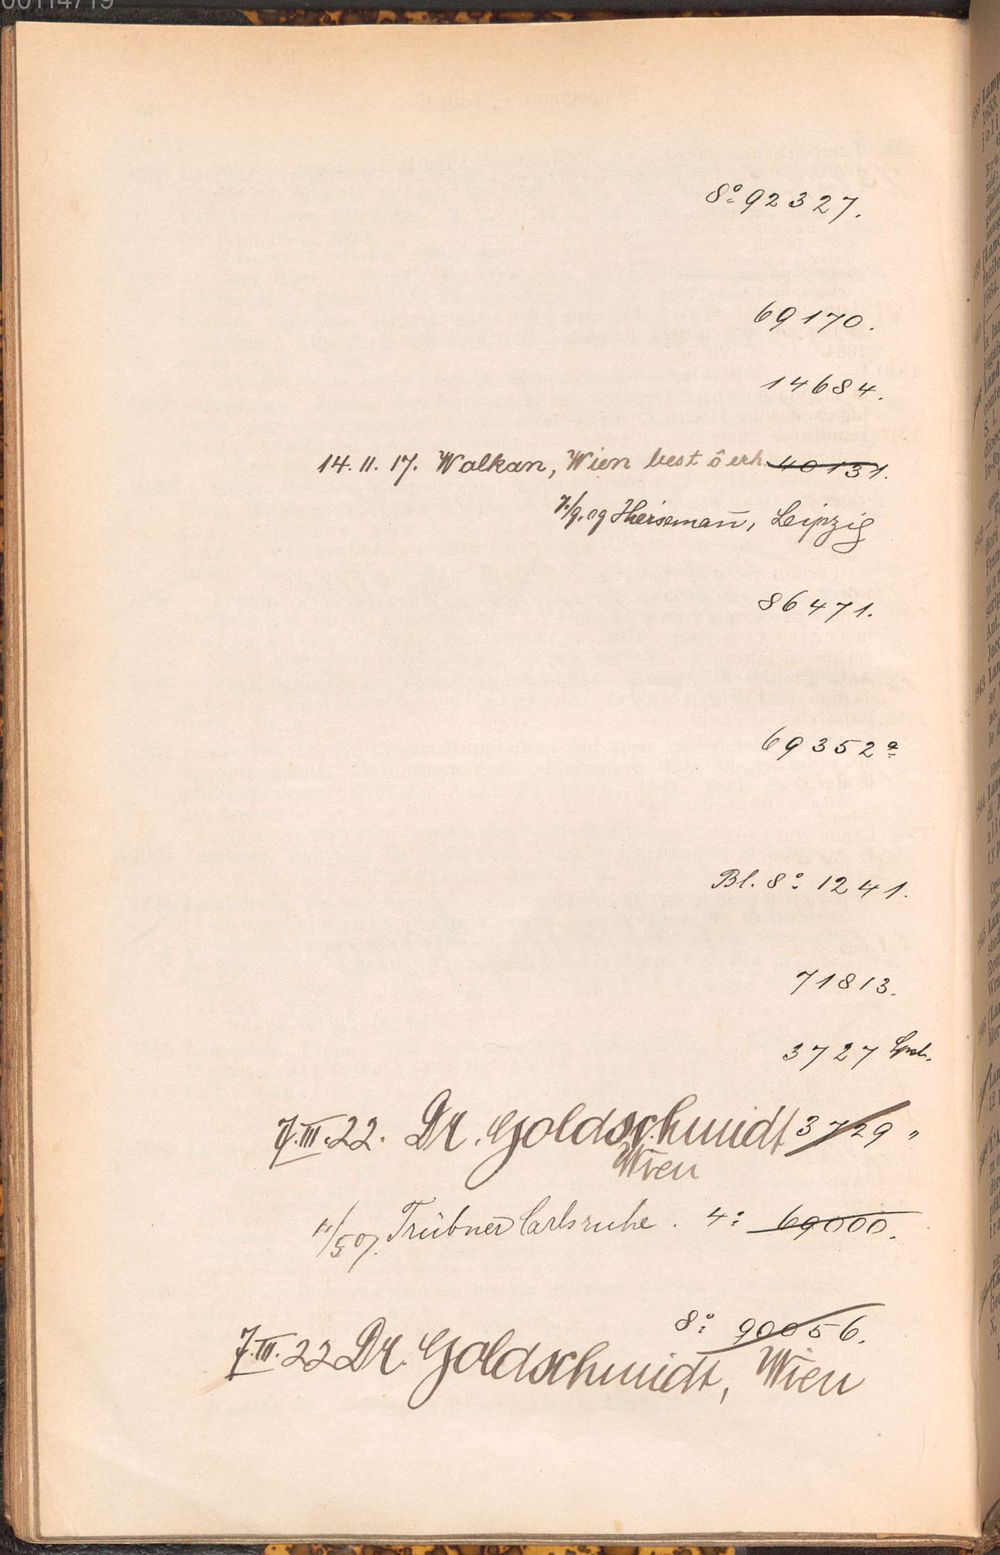 00114719
8º 92327.
69170.
14684.
14. II. 17. Walkan, Wien best ô erh. 40131.
7/9.09 Hiersemann, Leipzig
86471.
69352ª
Bl. 8º 1241.
71813.
3727
7.III.22. Dr. Goldschmidt 3729 "
Wien
/5 07. Trübner Carlsruhe. 4º 69000.
8º 90056.
7.III.22 Dr. Goldschmidt, Wien